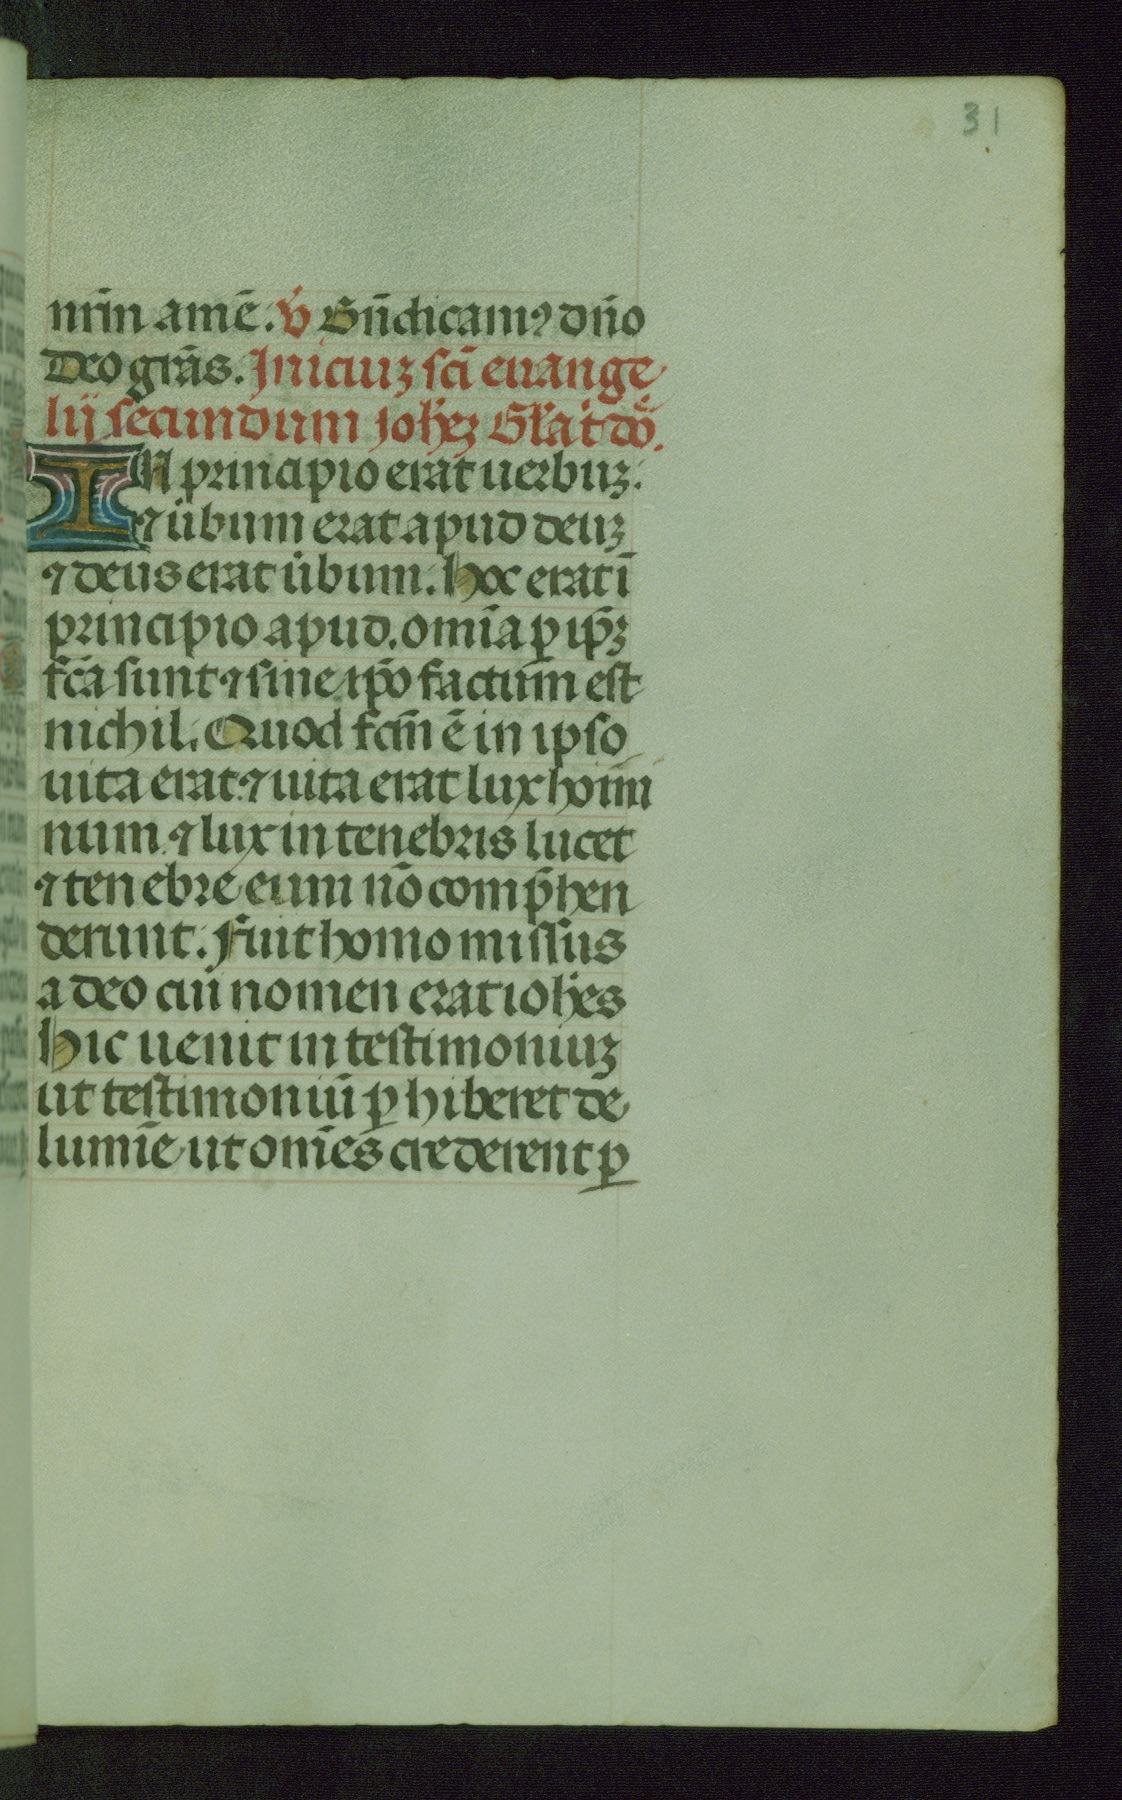 31
nr̄m amē. v̓ Bn̄dicamꝰ dn̄o
Deo gr̄as. Iniciuꝫ sc̄i euange
lij secundum ioh̄eꝫ Gl̄a t̓ dō.
IN principio erat uerbuꝫ:
⁊ u̓bum erat apud deuꝫ
⁊ deus erat u̓bum. hoc erat ī
principio apud. om̄ia ꝑ ip̄ꝫ
fc̄a sunt ⁊ sine ip̄o factum est
nichil. Quod fc̄m ē in ipso
uita erat. ⁊ uita erat lux homi
num. ⁊ lux in tenebris lucet
⁊ tenebre eum nō comp̄hen
derunt. Fuit homo missus
a deo cui nomen erat ioh̄es
hic uenit in testimoniuꝫ
ut testimoniū ꝑhiberet de
lumīe ut om̄es crederent ꝑ